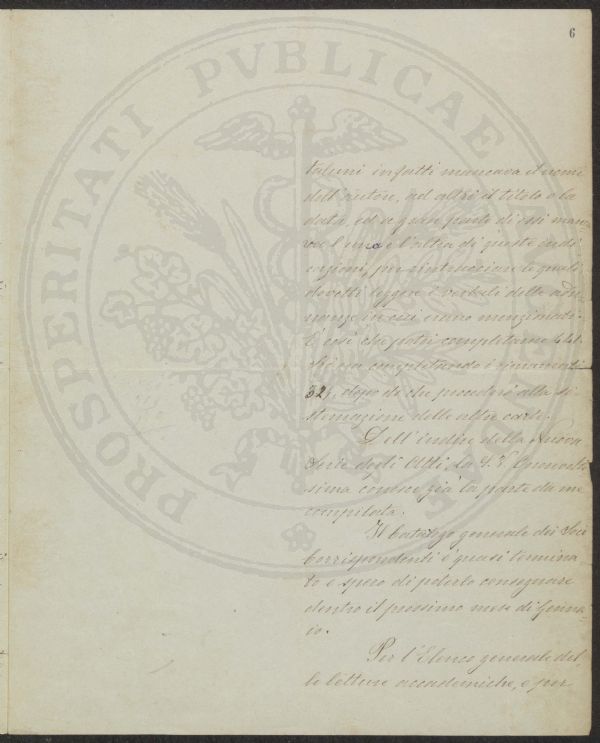 6
PROSPERITATI PVBLICAE
taluni infatti mancava il nome
dell'autore, ad altri il titolo o la
data, ed a gran parte di essi man-
va l'una e l'altra di queste indi
cazioni, per rintracciare le quali
dovetti leggere i verbali delle adu-
nanze in cui erano menzionati.
È così che potei completarne 441.
completando i rimanenti
32, dopo di che procederò alla si-
stemazione delle altre carte.
Dell'indice della Nuova
Serie degli Atti, la S. V. Onorevolis
sima conosce già la parte da me
compilata.
Il Catalogo generale dei Soci
Corrispondenti è quasi termina
to e spero di poterlo consegnare
dentro il prossimo mese di Genna-
io.
Per l'Elenco generale del
le letture accademiche, e per